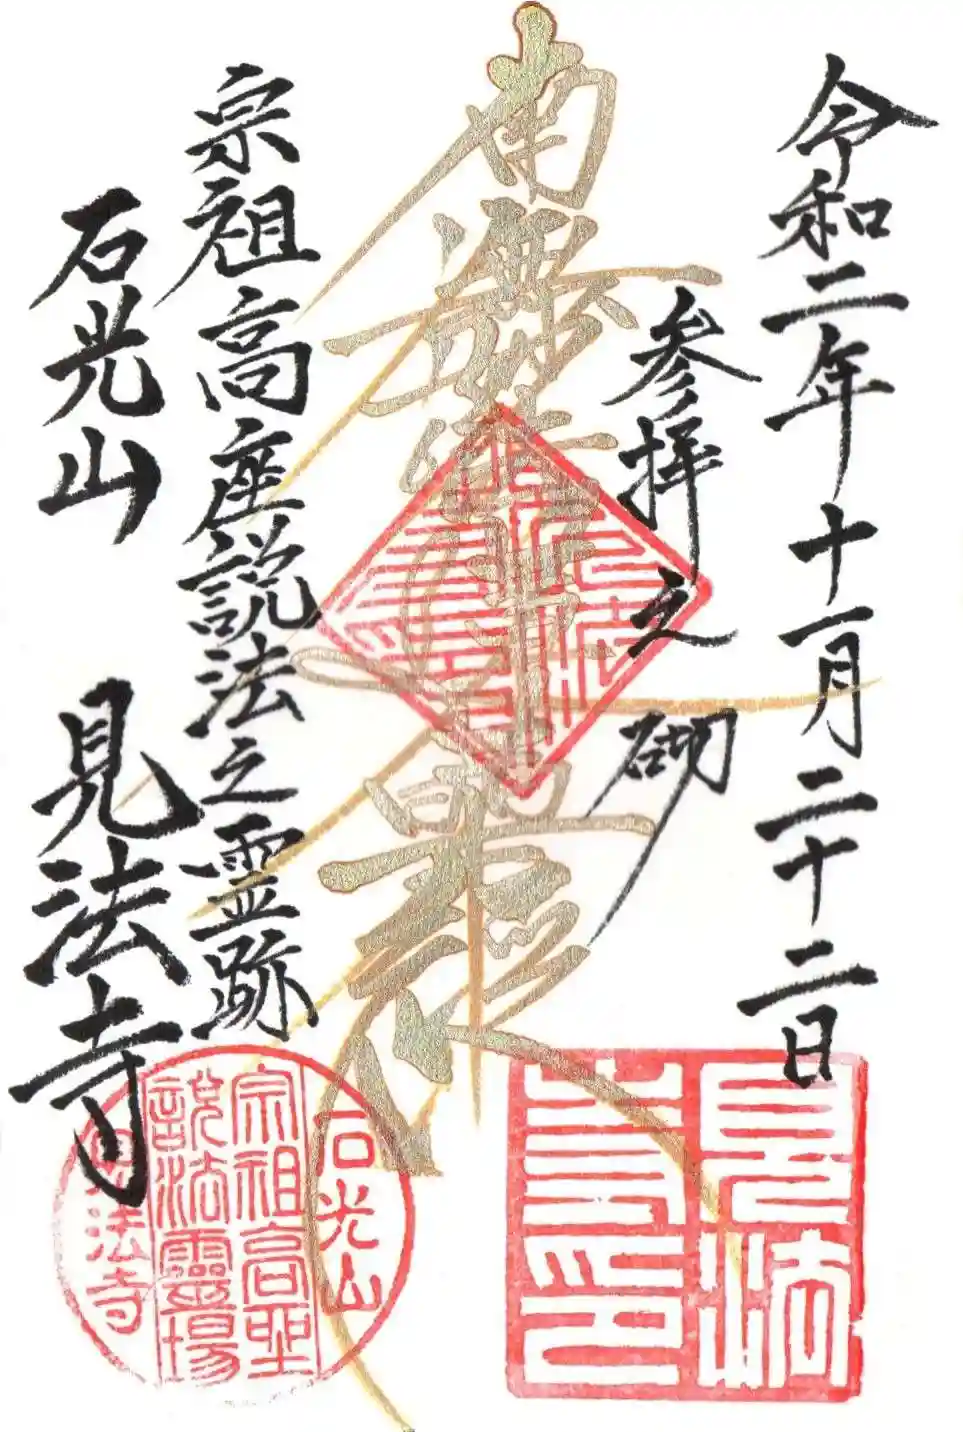 令和二年十一月二十二日
参拝之砌
南無妙法蓮華経
宗祖高座説法之霊跡
石光山
見法寺
石光山
宗祖高聖
説法霊場
見法寺
見法
寺印